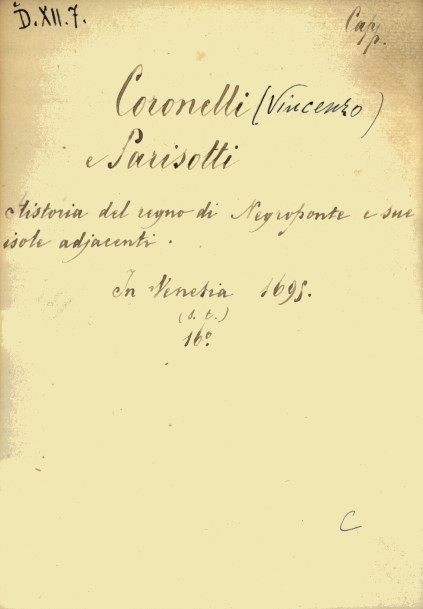 D.XII.7.
Capp.
Coronelli (Vincenzo)
e Parisotti
Historia del regno di Negroponte e sue
isole adjacenti.
In Venezia 1695.
(s. t.)
16°.
C